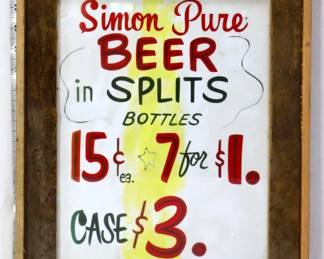 Simon Pure
BEER
in SPLITS
BOTTLES
15¢ ea. 7 for $1.
CASE $3.